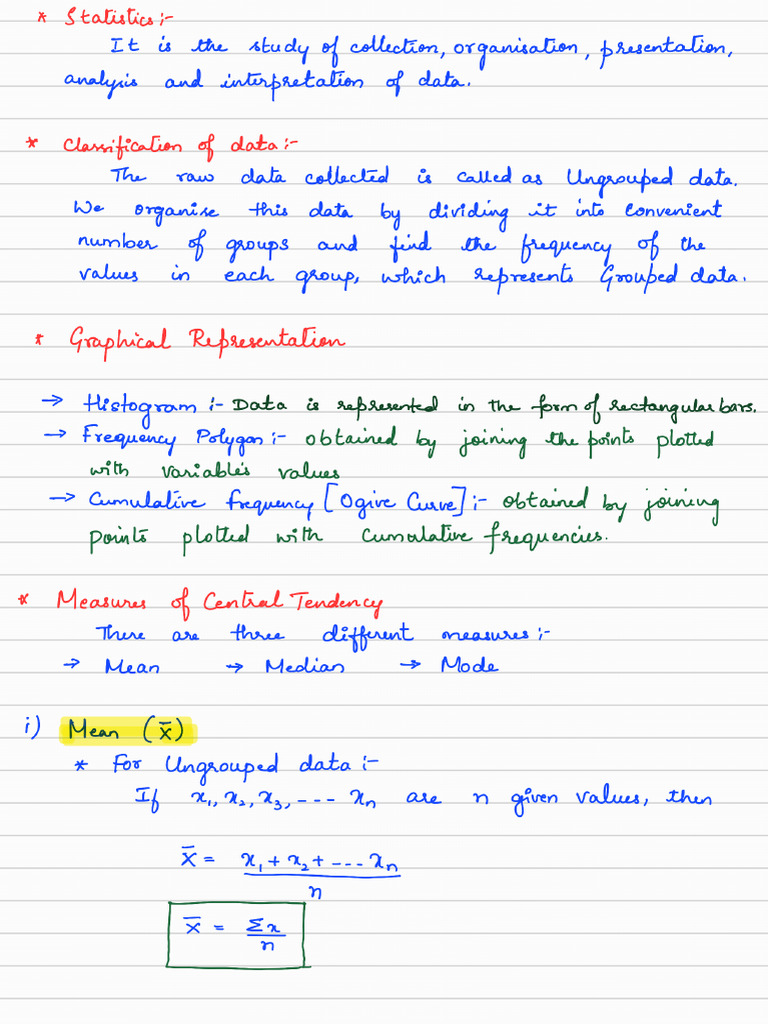 * Statistics :-
It is the study of collection, organisation, presentation,
analysis and interpretation of data.
* Classification of data :-
The raw data collected is called as Ungrouped data.
We organise this data by dividing it into convenient
number of groups and find the frequency of the
values in each group, which represents Grouped data.
* Graphical Representation
→ Histogram :- Data is represented in the form of rectangular bars.
→ Frequency Polygon :- obtained by joining the points plotted
with variable's values
→ Cumulative frequency [Ogive Curve] :- obtained by joining
points plotted with cumulative frequencies.
* Measures of Central Tendency
There are three different measures :-
→ Mean → Median → Mode
i) Mean (x̄)
* For Ungrouped data :-
If x₁, x₂, x₃, --- xₙ are n given values, then
X̄ = x₁ + x₂ + --- xₙ
n
X̄ = Σx
n